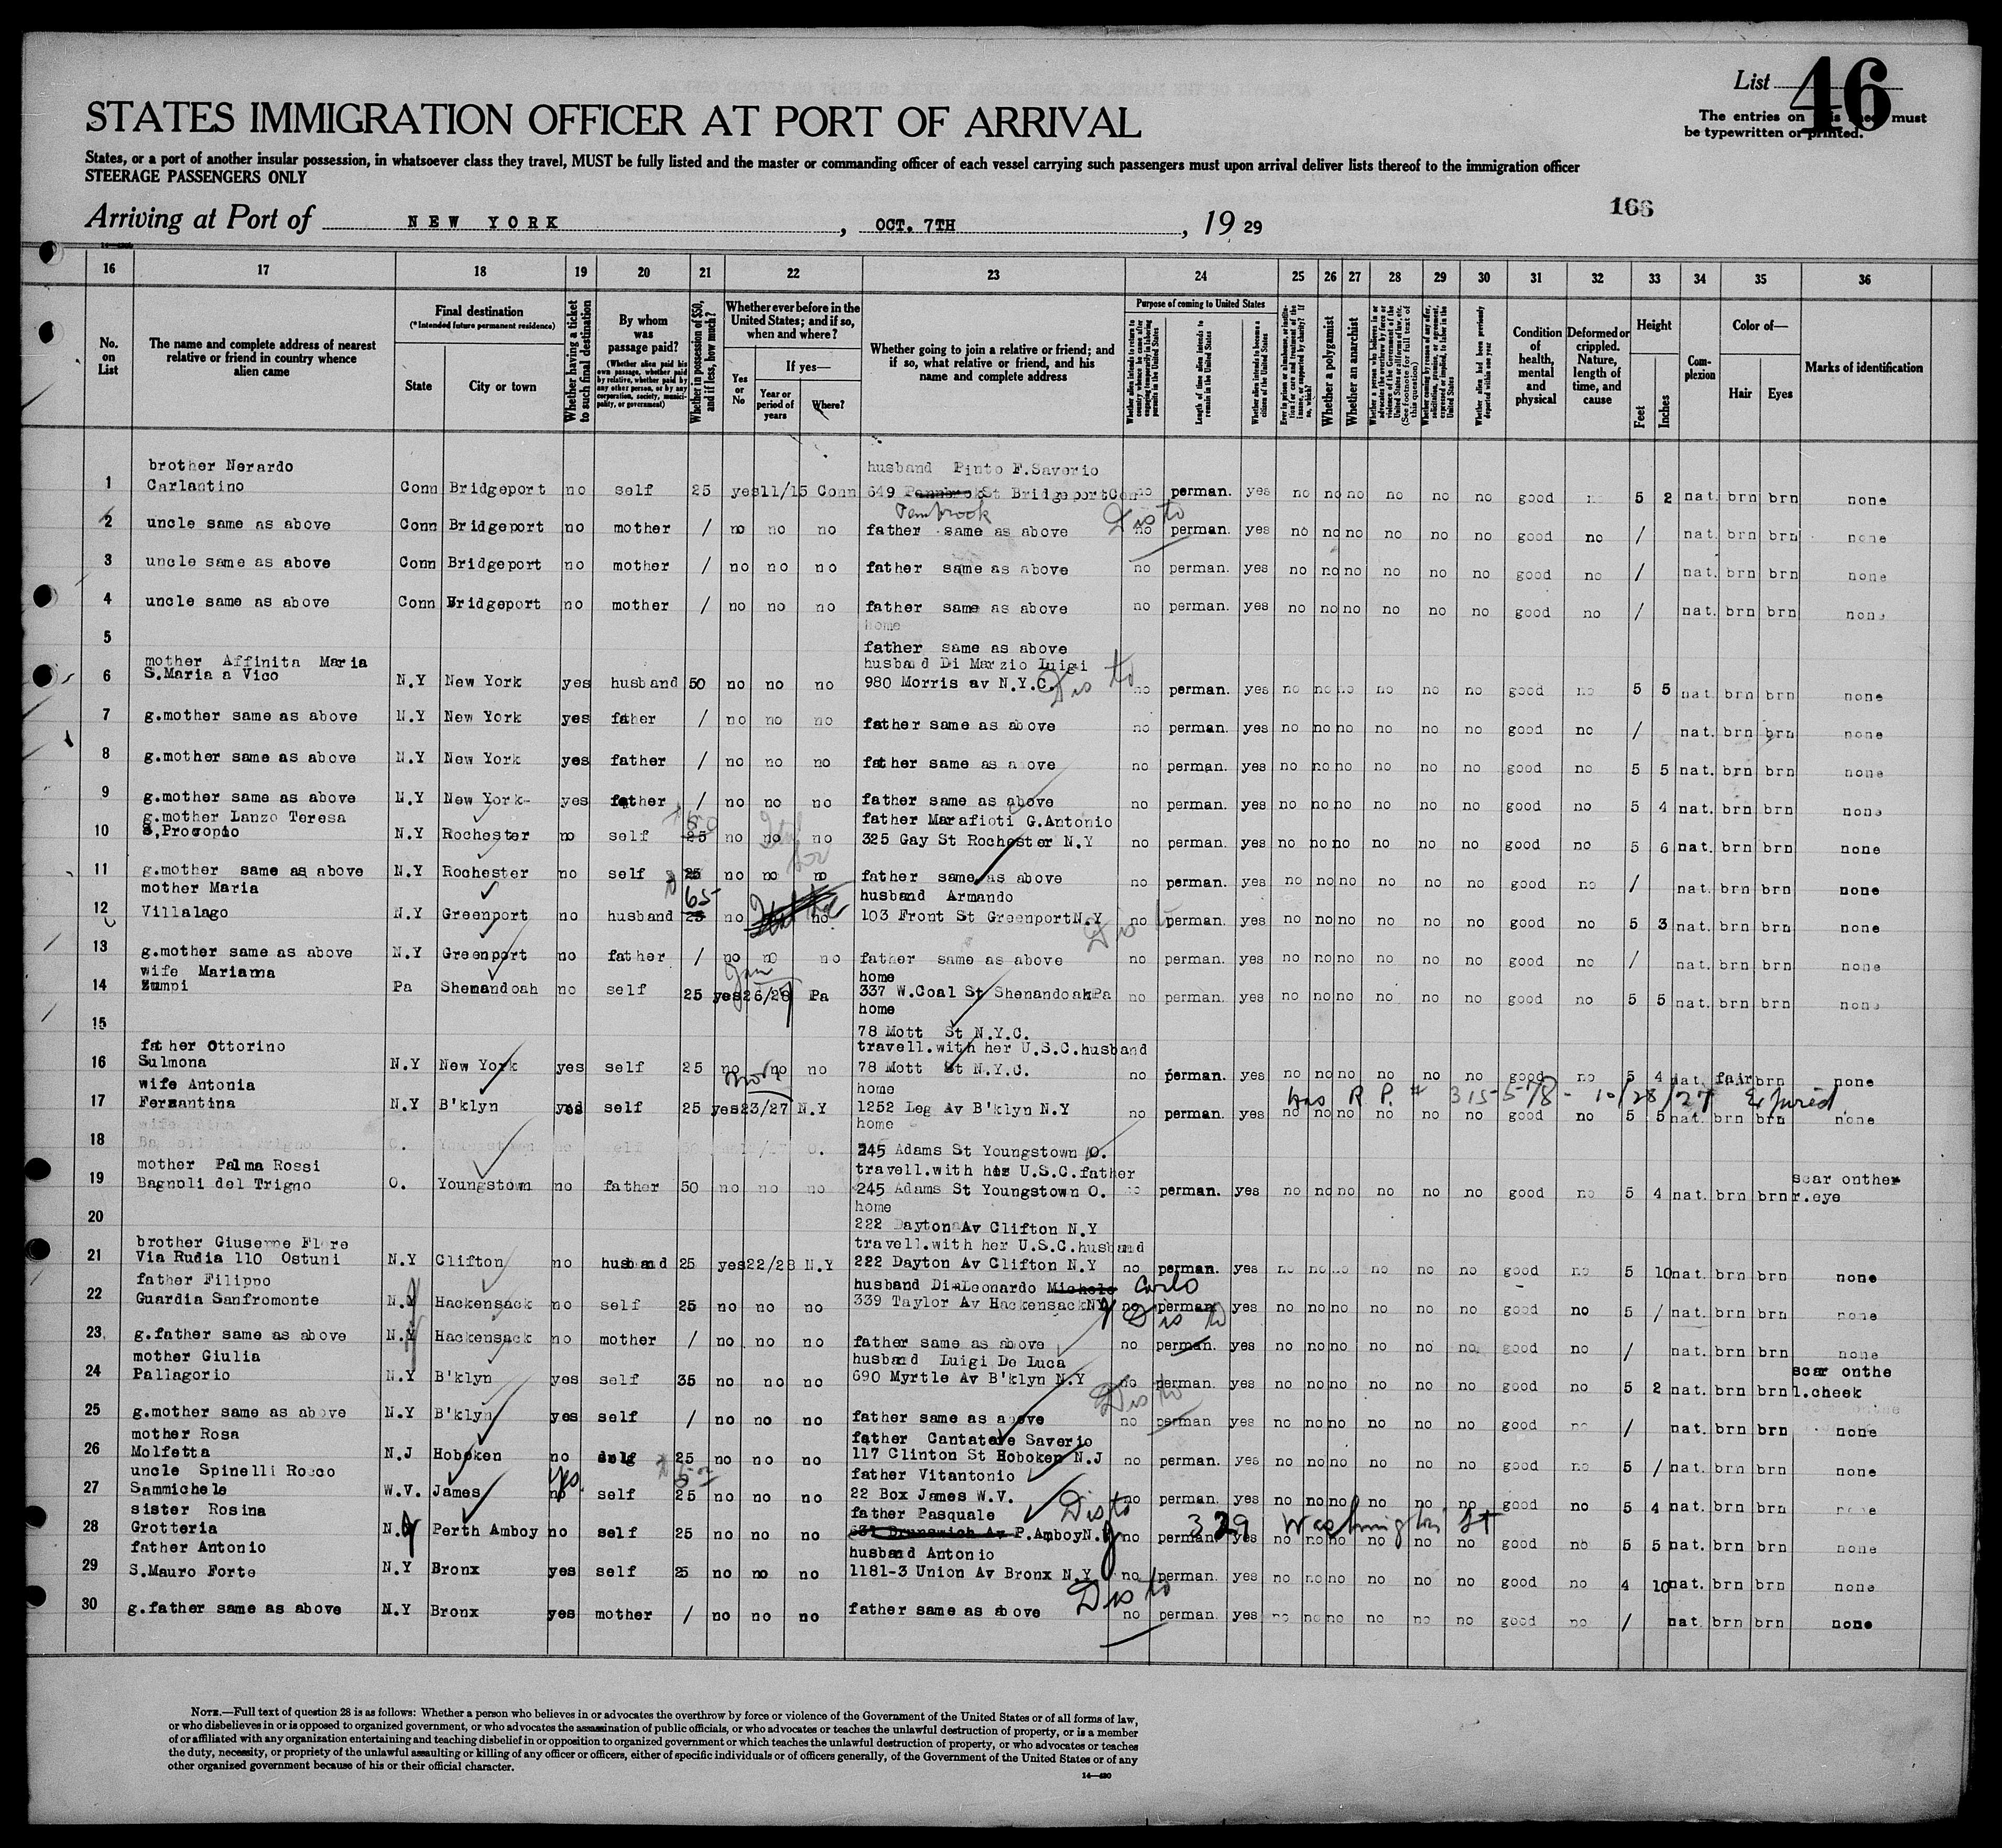 List 46
The entries on this sheet must
be typewritten or printed.
STATES IMMIGRATION OFFICER AT PORT OF ARRIVAL
States, or a port of another insular possession, in whatsoever class they travel, MUST be fully listed and the master or commanding officer of each vessel carrying such passengers must upon arrival deliver lists thereof to the immigration officer
STEERAGE PASSENGERS ONLY
166
Arriving at Port of NEW YORK, OCT. 7TH, 19 29
16 17 18 19 20 21 22 23 24 25 26 27 28 29 30 31 32 33 34 35 36
No. on List
The name and complete address of nearest relative or friend in country whence alien came
Final destination
(*Intended future permanent residence)
State City or town
Whether having a ticket to such final destination
By whom was passage paid?
(Whether alien paid his own passage, whether paid by relative, whether paid by any other person, or by any corporation, society, municipality, or government)
Whether in possession of $50, and if less, how much?
Whether ever before in the United States; and if so, when and where?
Yes or No
If yes—
Year or period of years
Where?
Whether going to join a relative or friend; and if so, what relative or friend, and his name and complete address
Purpose of coming to United States
Length of time alien intends to remain in the United States
Whether alien intends to become a citizen of the United States
Whether a polygamist
Whether an anarchist
Whether alien had been previously deported within one year
Condition of health, mental and physical
Deformed or crippled. Nature, length of time, and cause
Height
Feet Inches
Complexion
Color of—
Hair Eyes
Marks of identification
brother Nerardo husband Pinto F.Saverio
1 Carlantino Conn Bridgeport no self 25 yes 11/15 Conn 649 Pannbrok St Bridgeport Con no perman. yes no no no no no no good no 5 2 nat. brn brn none
Pembrook
2 uncle same as above Conn Bridgeport no mother / no no no father same as above no perman. yes no no no no no no good no / nat. brn brn none
3 uncle same as above Conn Bridgeport no mother / no no no father same as above no perman. yes no no no no no no good no / nat. brn brn none
4 uncle same as above Conn Bridgeport no mother / no no no father same as above no perman. yes no no no no no no good no / nat. brn brn none
home
5 father same as above
mother Affinita Maria husband Di Marzio Luigi
6 S.Maria a Vico N.Y New York yes husband 50 no no no 980 Morris av N.Y.C. no perman. yes no no no no no no good no 5 5 nat. brn brn none
7 g.mother same as above N.Y New York yes father / no no no father same as above no perman. yes no no no no no no good no / nat. brn brn none
8 g.mother same as above N.Y New York yes father / no no no father same as above no perman. yes no no no no no no good no 5 5 nat. brn brn none
9 g.mother same as above N.Y New York yes father / no no no father same as above no perman. yes no no no no no no good no 5 4 nat. brn brn none
g.mother Lanzo Teresa father Marafioti G.Antonio
10 S,Procopio N.Y Rochester no self 25 50 no no no 325 Gay St Rochester N.Y no perman. yes no no no no no no good no 5 6 nat. brn brn none
11 g.mother same as above N.Y Rochester no self 25 no no no father same as above no perman. yes no no no no no no good no / nat. brn brn none
mother Maria 65 husband Armando
12 Villalago N.Y Greenport no husband 25 no no 103 Front St Greenport N.Y no perman. yes no no no no no no good no 5 3 nat. brn brn none
13 g.mother same as above N.Y Greenport no father / no no no father same as above no perman. yes no no no no no no good no / nat. brn brn none
wife Marianna Jan home
14 Zumpi Pa Shenandoah no self 25 yes 26/28 Pa 337 W.Coal St Shenandoah Pa no perman. yes no no no no no no good no 5 5 nat. brn brn none
home
15 78 Mott St N.Y.C.
father Ottorino travell.with her U.S.C.husband
16 Sulmona N.Y New York yes self 25 no no no 78 Mott St N.Y.C. no perman. yes no no no no no no good no 5 4 nat. fair brn none
wife Antonia Nov home has R P. # 315578 - 10/28/27 Expired.
17 Ferzantina N.Y B'klyn yes self 25 yes 23/27 N.Y 1252 Leg Av B'klyn N.Y no perman. yes no no no no no no good no 5 5 nat. brn brn none
home
18 O. Youngstown no self 50 O. 245 Adams St Youngstown O.
mother Palma Rossi travell.with his U.S.C.father
19 Bagnoli del Trigno O. Youngstown no father 50 no no no 245 Adams St Youngstown O. no perman. yes no no no no no no good no 5 4 nat. brn brn scar on ther r.eye
home
20 222 Dayton Av Clifton N.Y
brother Giuseppe Flore travell.with her U.S.C.husband
21 Via Rudia 110 Ostuni N.Y Clifton no husband 25 yes 22/28 N.Y 222 Dayton Av Clifton N.Y no perman. yes no no no no no no good no 5 10 nat. brn brn none
father Filippo husband Di Leonardo Michele Carlo
22 Guardia Sanfromonte N.J Hackensack no self 25 no no no 339 Taylor Av Hackensack N.J no perman. yes no no no no no no good no 5 / nat. brn brn none
23 g.father same as above N.J Hackensack no mother / no no no father same as above no perman. yes no no no no no no good no / nat. brn brn none
mother Giulia husband Luigi De Luca
24 Pallagorio N.Y B'klyn yes self 35 no no no 690 Myrtle Av B'klyn N.Y no perman. yes no no no no no no good no 5 2 nat. brn brn scar on the l.cheek
25 g.mother same as above N.Y B'klyn yes self / no no no father same as above no perman yes no no no no no no good no / nat. brn brn none
mother Rosa father Cantatore Saverio
26 Molfetta N.J Hoboken no self 25 no no no 117 Clinton St Hoboken N.J no perman. yes no no no no no no good no 5 / nat. brn brn none
uncle Spinelli Rocco yes father Vitantonio
27 Sammichele W.V. James no self 25 no no no 22 Box James W.V. no perman. yes no no no no no no good no 5 4 nat. brn brn none
sister Rosina father Pasquale 329 Washington St
28 Grotteria N.J Perth Amboy no self 25 no no no 637 Brunswich Av P.Amboy N.J no perman. yes no no no no no no good no 5 5 nat. brn brn none
father Antonio husband Antonio
29 S.Mauro Forte N.Y Bronx yes self 25 no no no 1181-3 Union Av Bronx N.Y no perman. yes no no no no no no good no 4 10 nat. brn brn none
30 g.father same as above N.Y Bronx yes mother / no no no father same as above no perman. yes no no no no no no good no / nat. brn brn none
NOTE.—Full text of question 28 is as follows: Whether a person who believes in or advocates the overthrow by force or violence of the Government of the United States or of all forms of law,
or who disbelieves in or is opposed to organized government, or who advocates the assassination of public officials, or who advocates or teaches the unlawful destruction of property, or is a member
of or affiliated with any organization entertaining and teaching disbelief in or opposition to organized government or which teaches the unlawful destruction of property, or who advocates or teaches
the duty, necessity, or propriety of the unlawful assaulting or killing of any officer or officers, either of specific individuals or of officers generally, of the Government of the United States or of any
other organized government because of his or their official character.
14—420